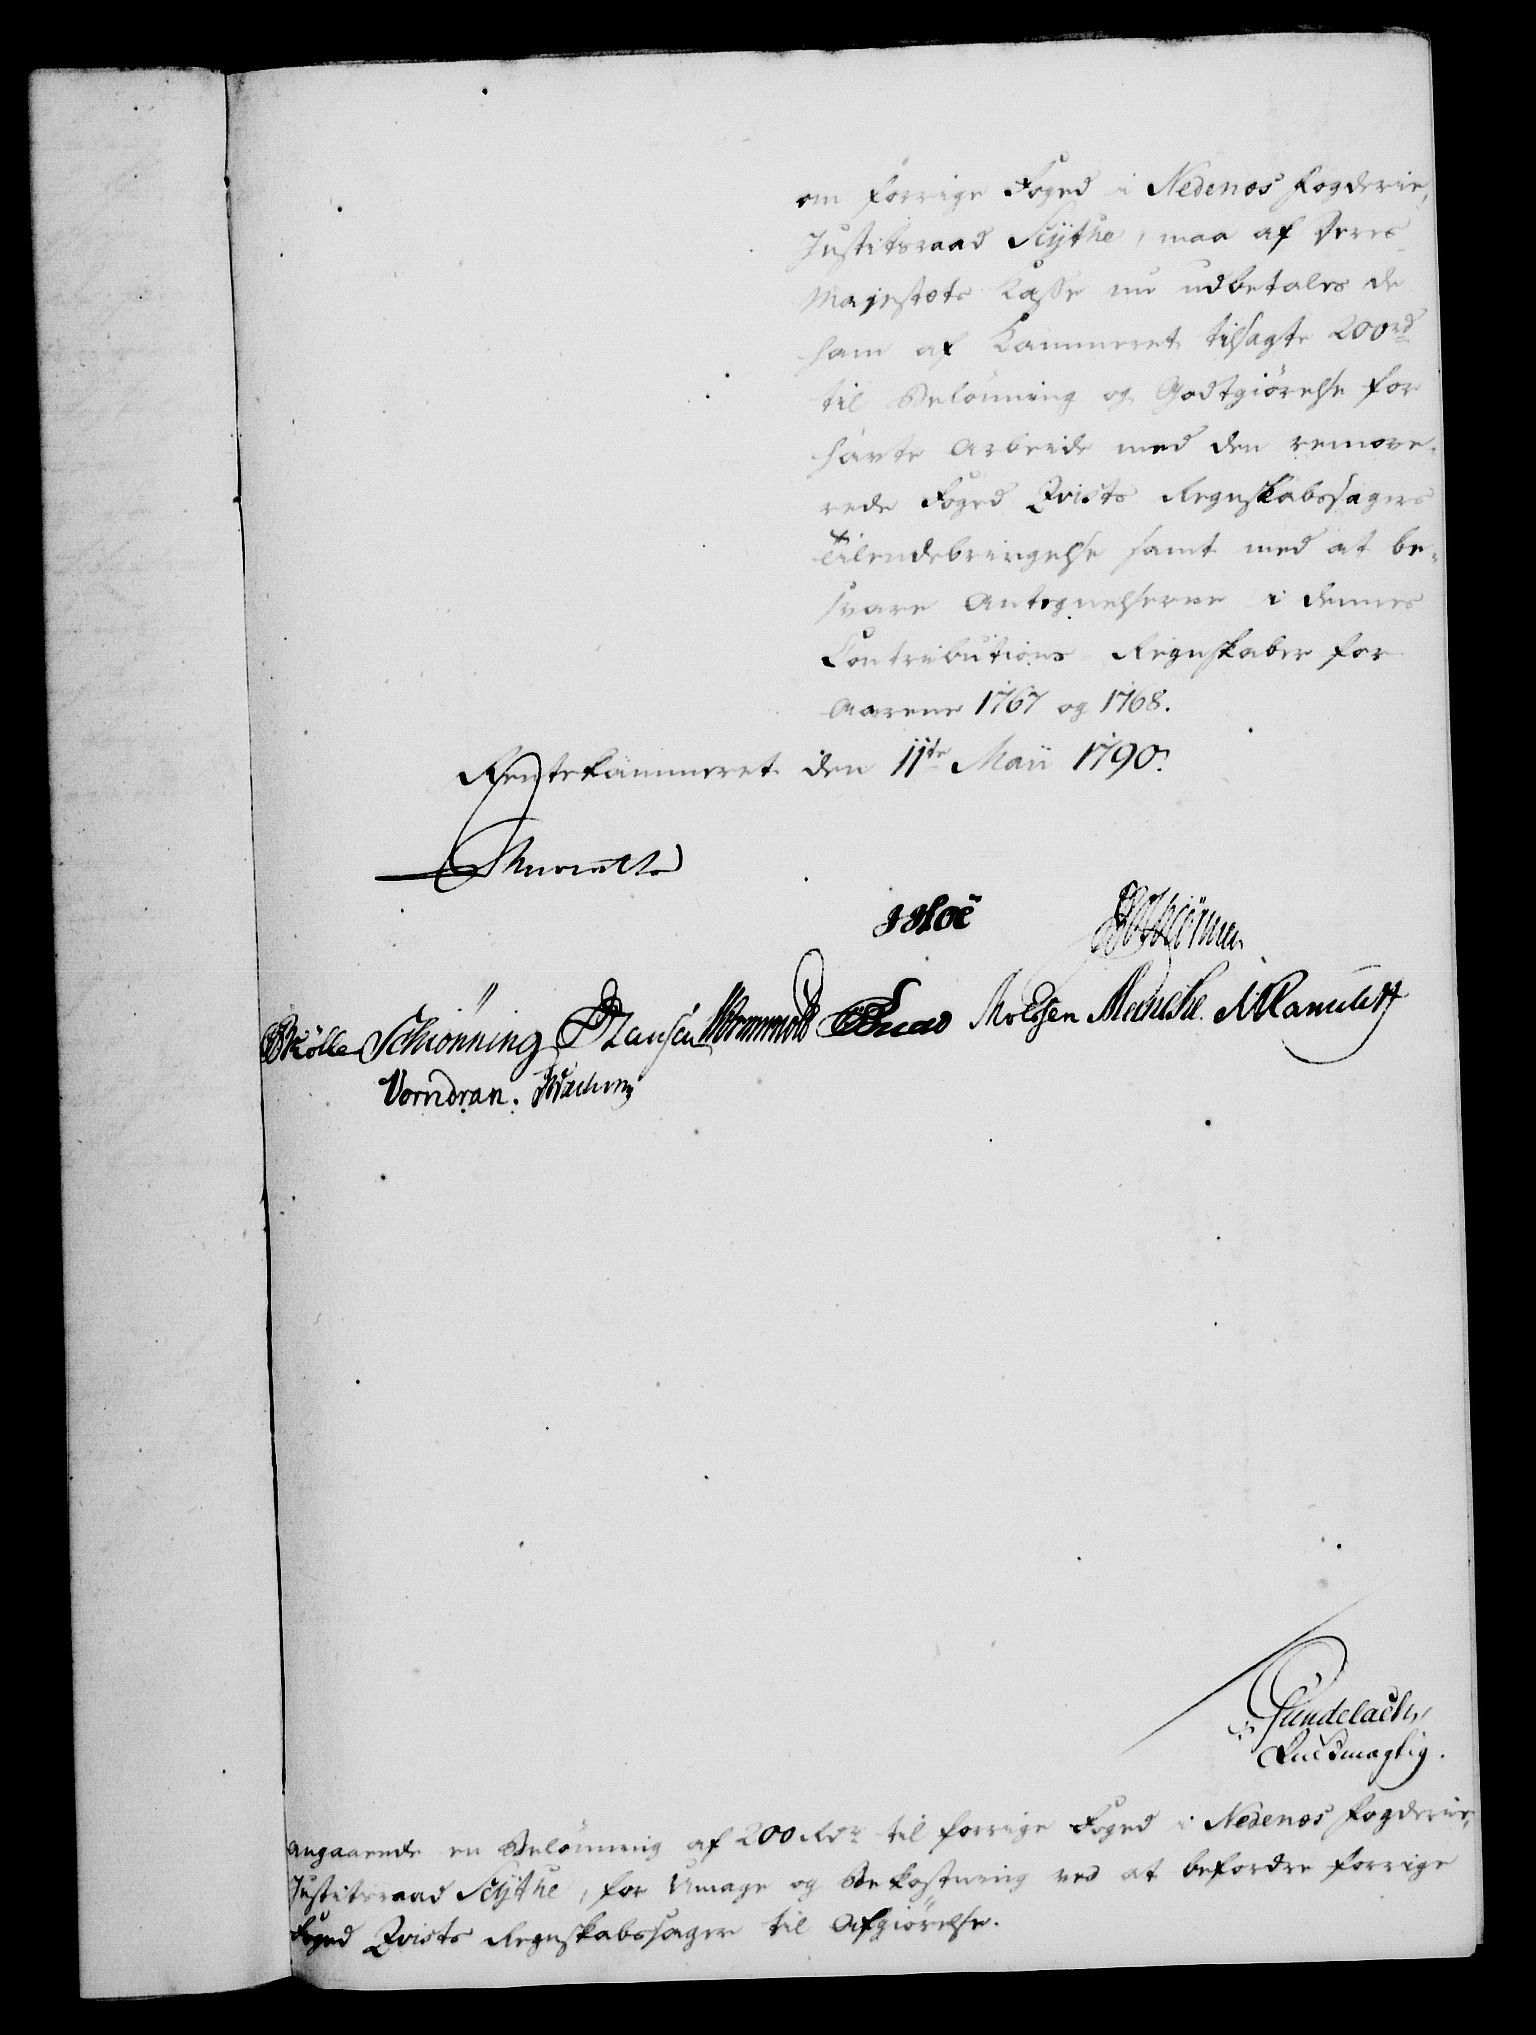 om forrige Foged i Nedenes Fogderie,
Justitsraad Scÿthe, maa af Deres
Majestæts Kasse nu udbetales de
ham af Kammeret tilsagte 200 rd
til Belönning og Godtgiörelse for
havte Arbeide med den remove-
rede Foged Qvists Regnskabssagers
Tilendebringelse samt med at be-
svare Antegnelserne i dennes
Contributions Regnskaber for
Aarene 1767 og 1768.
Rentekammeret den 11te Maii 1790.
Hoë
Schiönning Hansen Wormwold Meinche
Vorndran.
Gundelach,
Fuldmægtig.
angaaende en Belönning af 200 Rdr til forrige Foged i Nedenes Fogderie,
Justitsraad Scÿthe, for Umage og Bekostning ved at befordre forrige
Foged Qvists Regnskabssager til Afgiörelse.